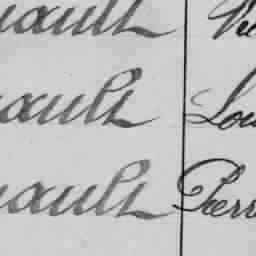 ault
ault Lou
ault Pierr